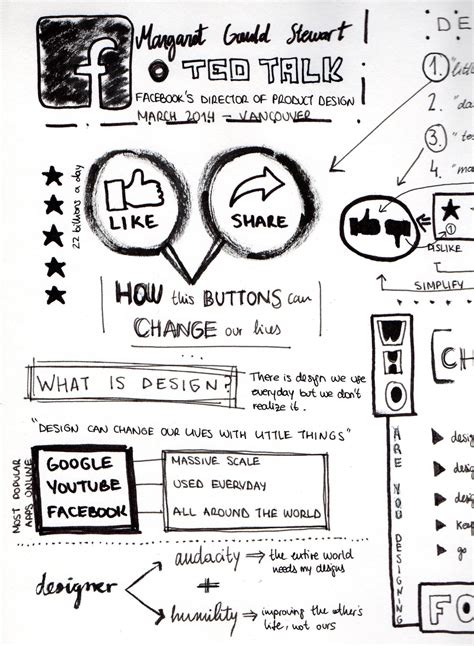 f
Margaret Gould Stewart
TED TALK
FACEBOOK'S DIRECTOR OF PRODUCT DESIGN
MARCH 2014 - VANCOUVER
22 billions a day
LIKE
SHARE
HOW this BUTTONS can
CHANGE our lives
WHAT IS DESIGN?
There is design we use
everyday but we don't
realize it.
"DESIGN CAN CHANGE OUR LIVES WITH LITTLE THINGS"
MOST POPULAR
APPS ONLINE
GOOGLE
YOUTUBE
FACEBOOK
MASSIVE SCALE
USED EVERYDAY
ALL AROUND THE WORLD
designer
audacity ⇒ the entire world
needs my designs
+
humility ⇒ improving the other's
life, not ours
DE
1.
2. "da
3. "te
4. "ma
1
DISLIKE
SIMPLIFY
WHO
ARE YOU DESIGNING
FO
CH
desig
desig
desig
keep
go